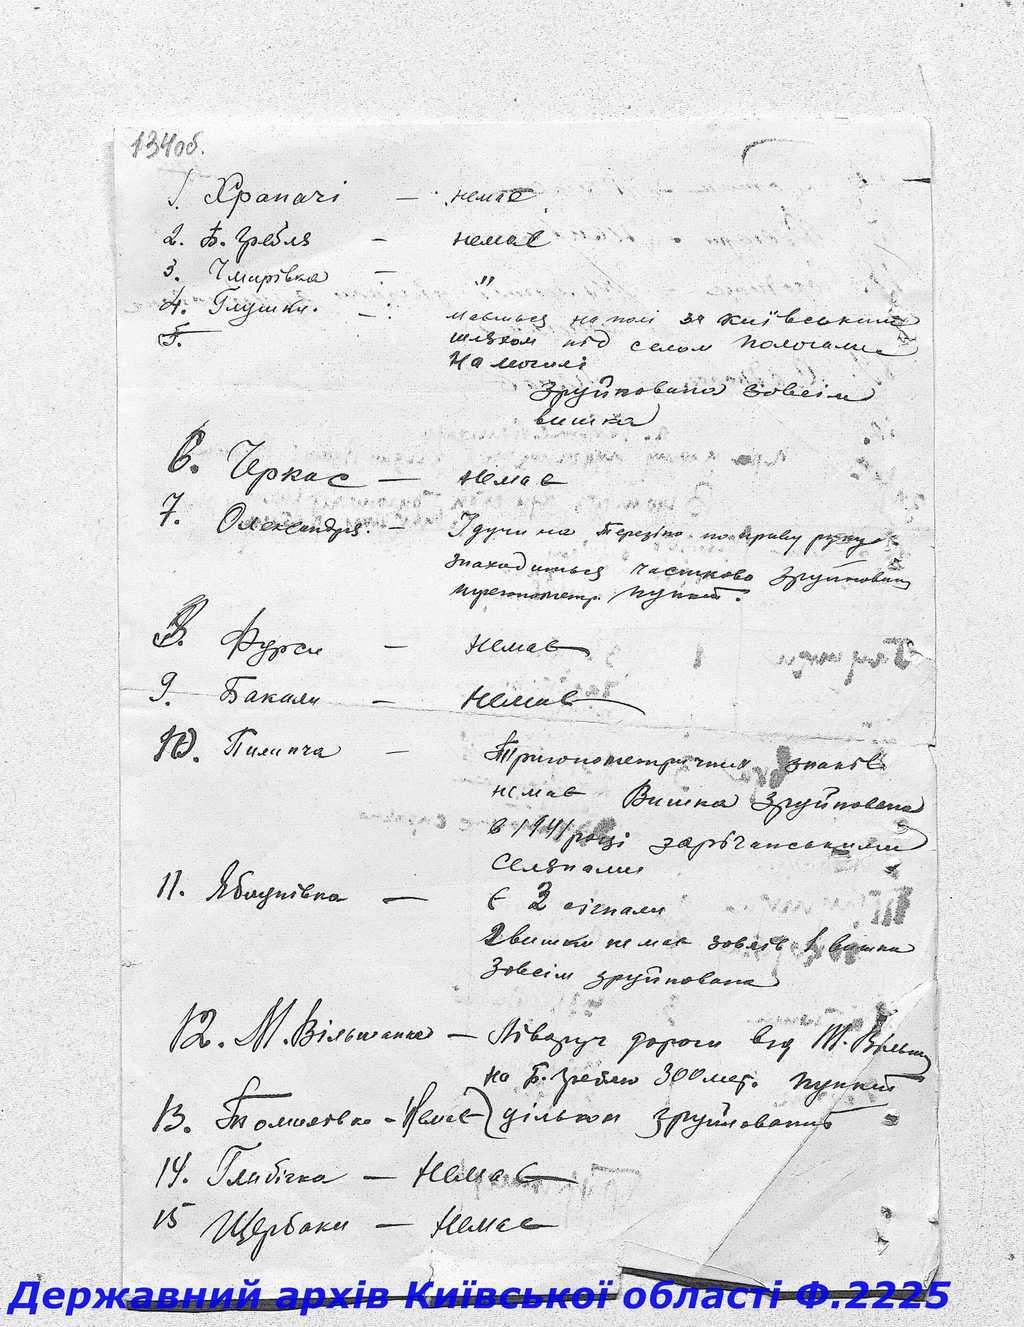 134об.
1. Храпачі — немає
2. Б. Гребля — немає
3. Чмирівка — „
4. Глушки. — мається на полі за Київським
5. шляхом під селом Пологами
На могилі
Зруйнована зовсім
вишка
6. Черкас — немає
7. Олександрія. — Ідучи на Терезіно по праву руку
знаходиться частково зруйнован
тригонометр. пункт.
8. Фурси — немає
9. Бакали — немає
10. Пилипча — Тригонометричних знаків
немає Вишка Зруйнована
в 1941 році
Селянами
11. Яблунівка — Є 3 сігнали
2 вишки немає зовсів 1 вишка
Зовсім зруйнована
12. М. Вільшанка — Ліворуч дороги від М. Вільш
на Б. Греблю 300 мет. пункт
13. Томилівка - Немає) цілком Зруйнований
14. Глибічка — Немає
15 Щербаки — Немає
Державний архів Київської області Ф.2225